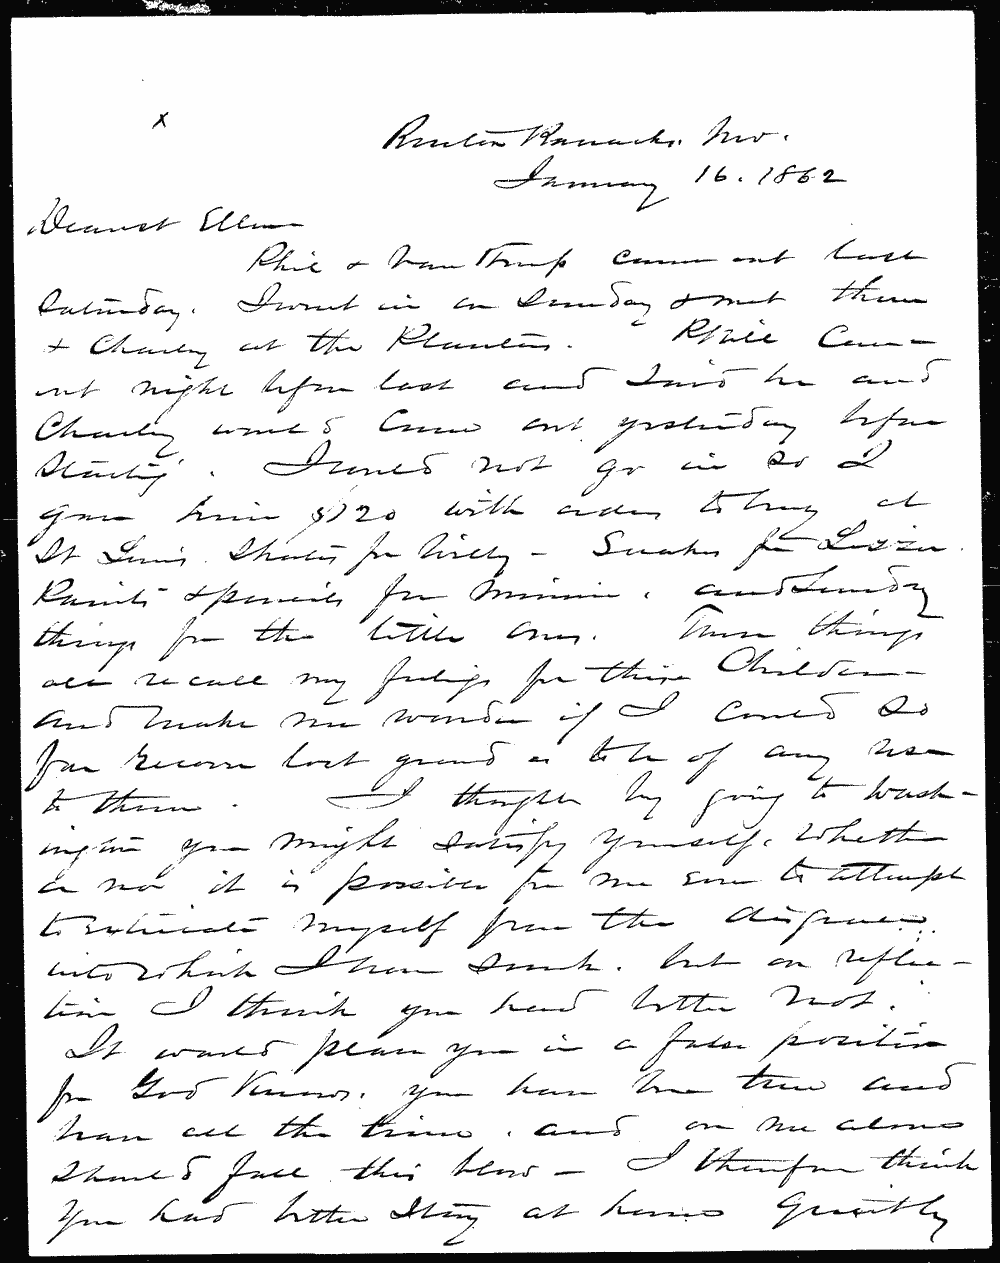 x
Benton Barracks. Mo.
January 16. 1862
Dearest Ellen
Phil & Van Trump came out last
Saturday. I went in on Sunday & met them
& Charley at the Planters. Phil came
out night before last and said he and
Charley would come out yesterday before
starting. I could not go in so I
gave him $20 with orders to buy at
St Louis. Skates for Willy - for Lizzie.
Paints & pencils for Minnie. and Sunday
things for the little ones. These things
all recall my feelings for those Children -
and make me wonder if I could so
far recover lost ground as to be of any use
to them. I thought by going to Wash-
ington you might satisfy yourself. whether
or not it is possible for me ever to attempt
to extricate myself from the disgrace
into which I have sunk. but on reflec-
tion I think you had better not.
It would place you in a false position
for God knows. you have been true and
have all the time. and on me alone
should fall this blow - I therefore think
you had better stay at home quietly